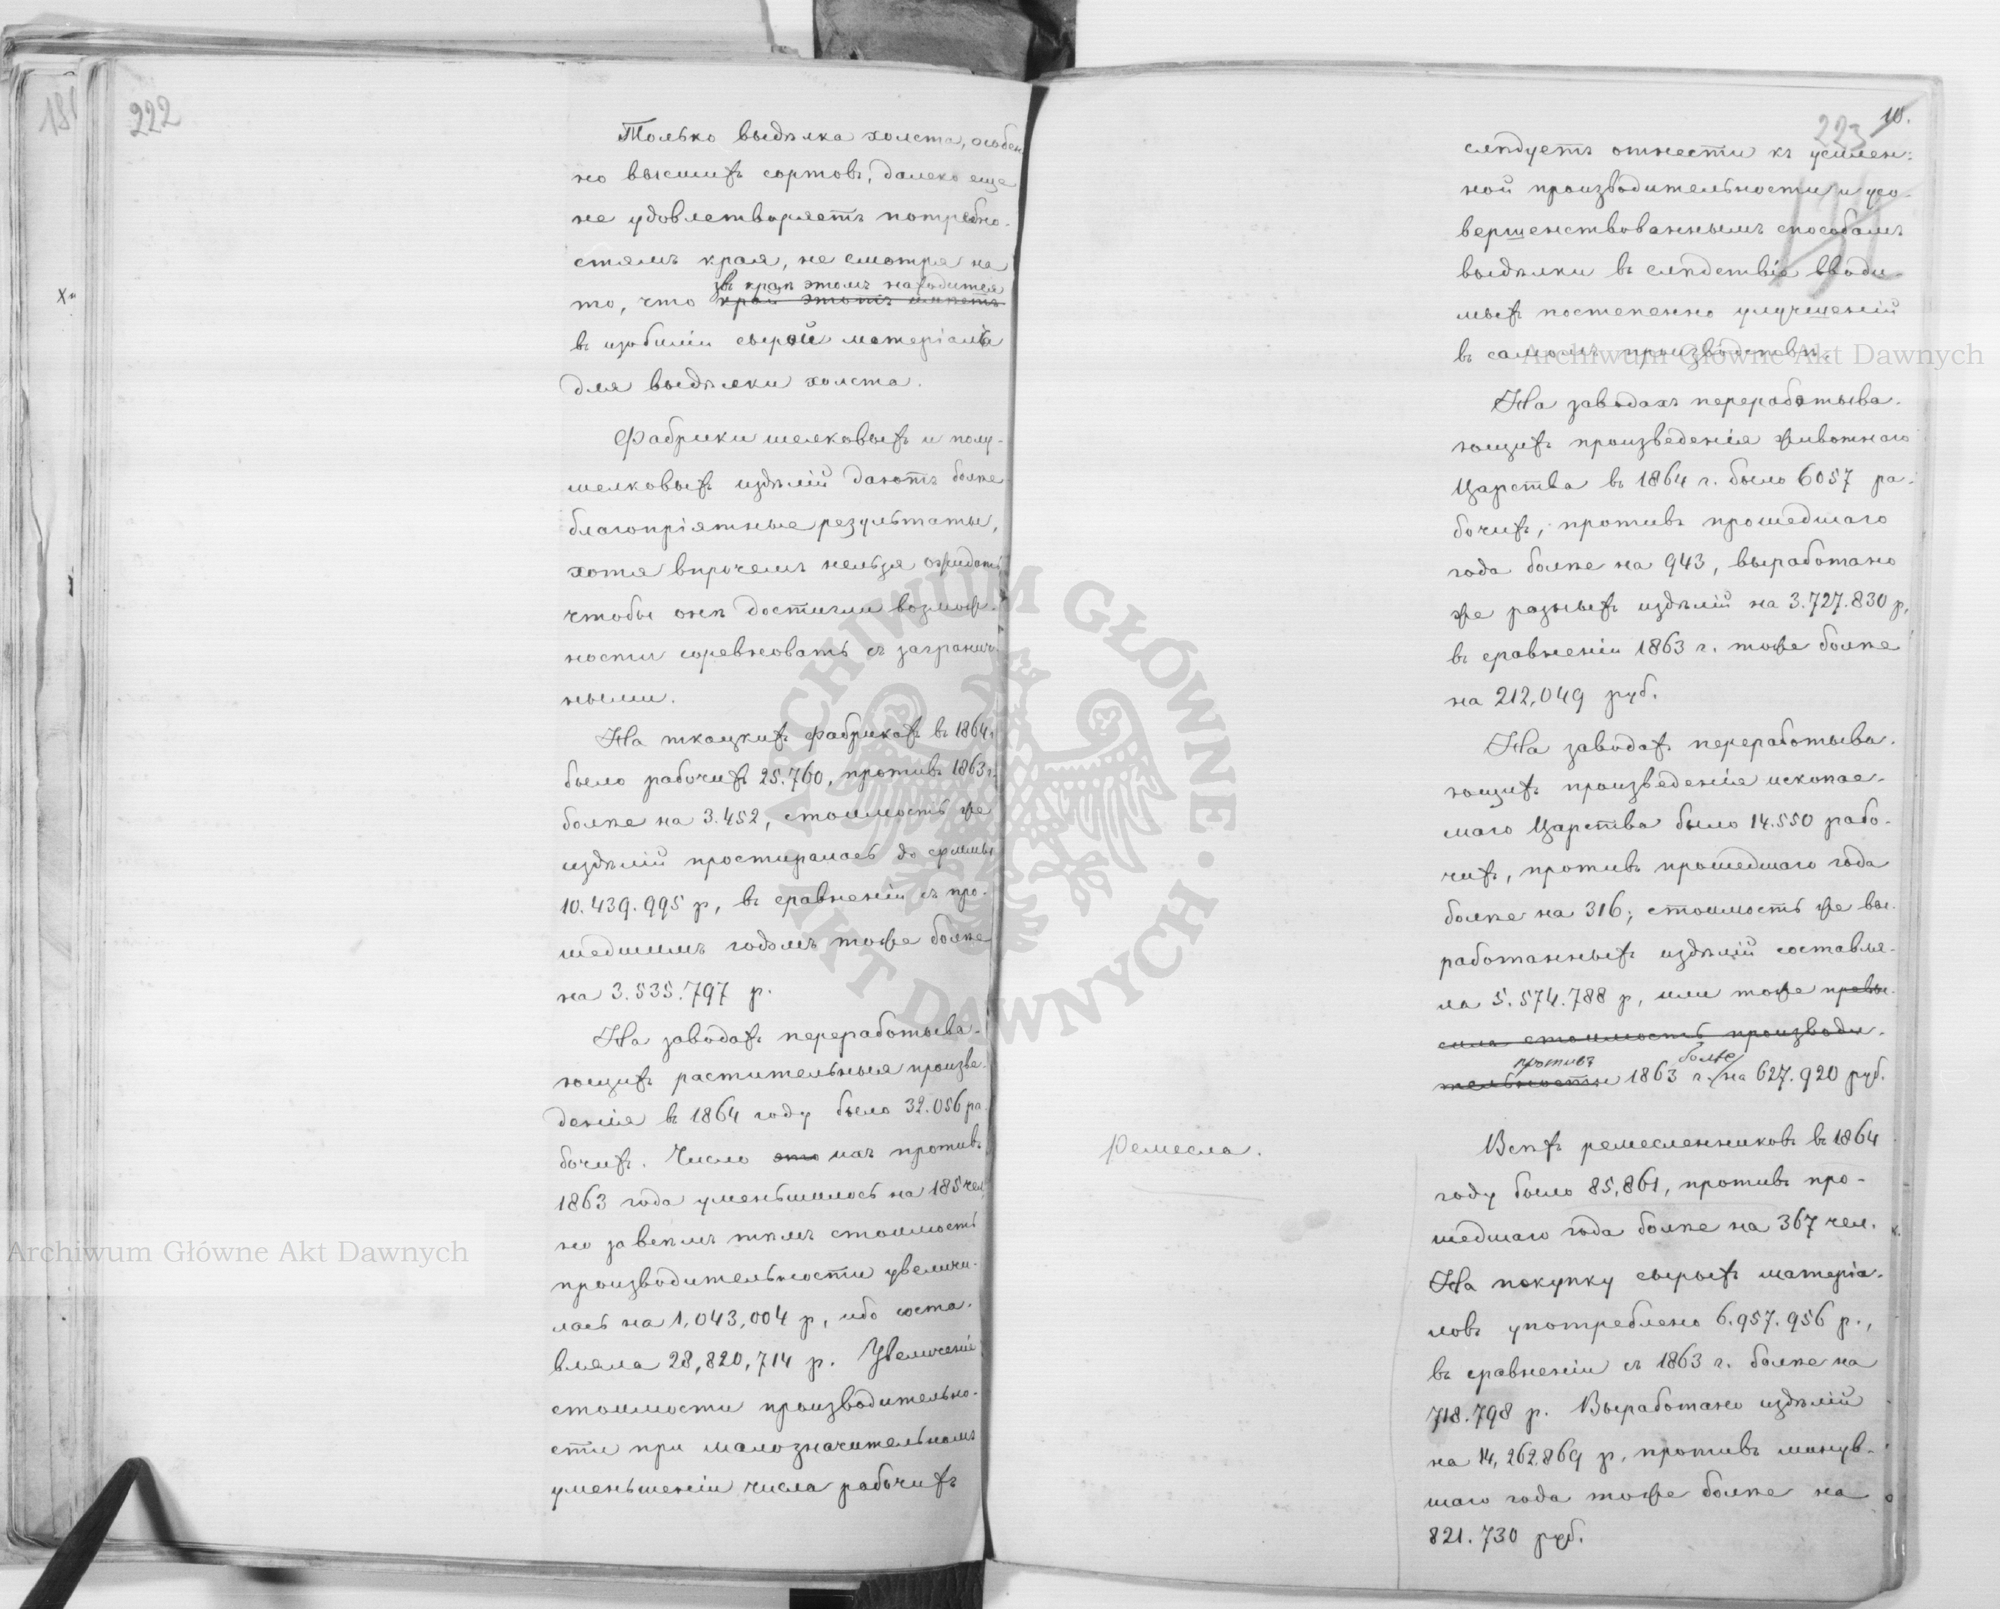 181
222
Только выдѣлка холста, особен
но высшихъ сортовъ, далеко еще
не удовлетворяетъ потребно-
стямъ края, не смотря на
въ краѣ этомъ находится
то, что край этотъ имѣетъ
въ изобиліи сырой матеріалъ
для выдѣлки холста.
Фабрики шелковыхъ и полу-
шелковыхъ издѣлій даютъ болѣе
благопріятные результаты,
хотя впрочемъ нельзя ожидать
чтобы онѣ достигли возмож-
ности соревновать съ загранич-
ными.
На ткацкихъ фабрикахъ въ 1864 г
было рабочихъ 25.760, противъ 1863 г.
болѣе на 3.452, стоимость же
издѣлій простиралась до суммы
10.439.995 р, въ сравненіи съ про-
шедшимъ годомъ тоже болѣе
на 3.535.797 р.
На заводахъ переработыва-
ющихъ растительныя произве-
денія въ 1864 году было 32.056 ра
бочихъ. Число это ихъ противъ
1863 года уменьшилось на 185 чел
но за всѣмъ тѣмъ стоимость
производительности увеличи-
лась на 1,043,004 р, ибо соста-
вляла 28,820,714 р. Увеличеніе
стоимости производительно-
сти при малозначительномъ
уменьшеніи числа рабочихъ
10.
223
181
слѣдуетъ отнести къ усилен-
ной производительности и усо-
вершенствованнымъ способамъ
выдѣлки въ слѣдствіе вводи-
мыхъ постепенно улучшеній
въ самомъ производствѣ.
На заводахъ переработыва-
ющихъ произведенія животнаго
Царства въ 1864 г. было 6057 ра-
бочихъ, противъ прошедшаго
года болѣе на 943, выработано
же разныхъ издѣлій на 3.727.830 р,
въ сравненіи 1863 г. тоже болѣе
на 212,049 руб.
На заводахъ переработыва-
ющихъ произведенія ископае-
маго Царства было 14.550 рабо-
чихъ, противъ прошедшаго года
болѣе на 316; стоимость же вы-
работанныхъ издѣлій составля-
ла 5.574.788 р, или тоже превы-
сила стоимость производи-
противъ болѣе
тельности 1863 г. на 627.920 руб.
Ремесла.
Всѣхъ ремесленниковъ въ 1864
году было 85,861, противъ про-
шедшаго года болѣе на 367 чел.
На покупку сырыхъ матеріа-
ловъ употреблено 6.957.956 р.,
въ сравненіи съ 1863 г. болѣе на
718.798 р. Выработано издѣлій
на 14,262.869 р. противъ минув-
шаго года тоже болѣе на
821.730 руб.
Archiwum Główne Akt Dawnych
Archiwum Główne Akt Dawnych
ARCHIWUM GŁÓWNE · AKT DAWNYCH ·